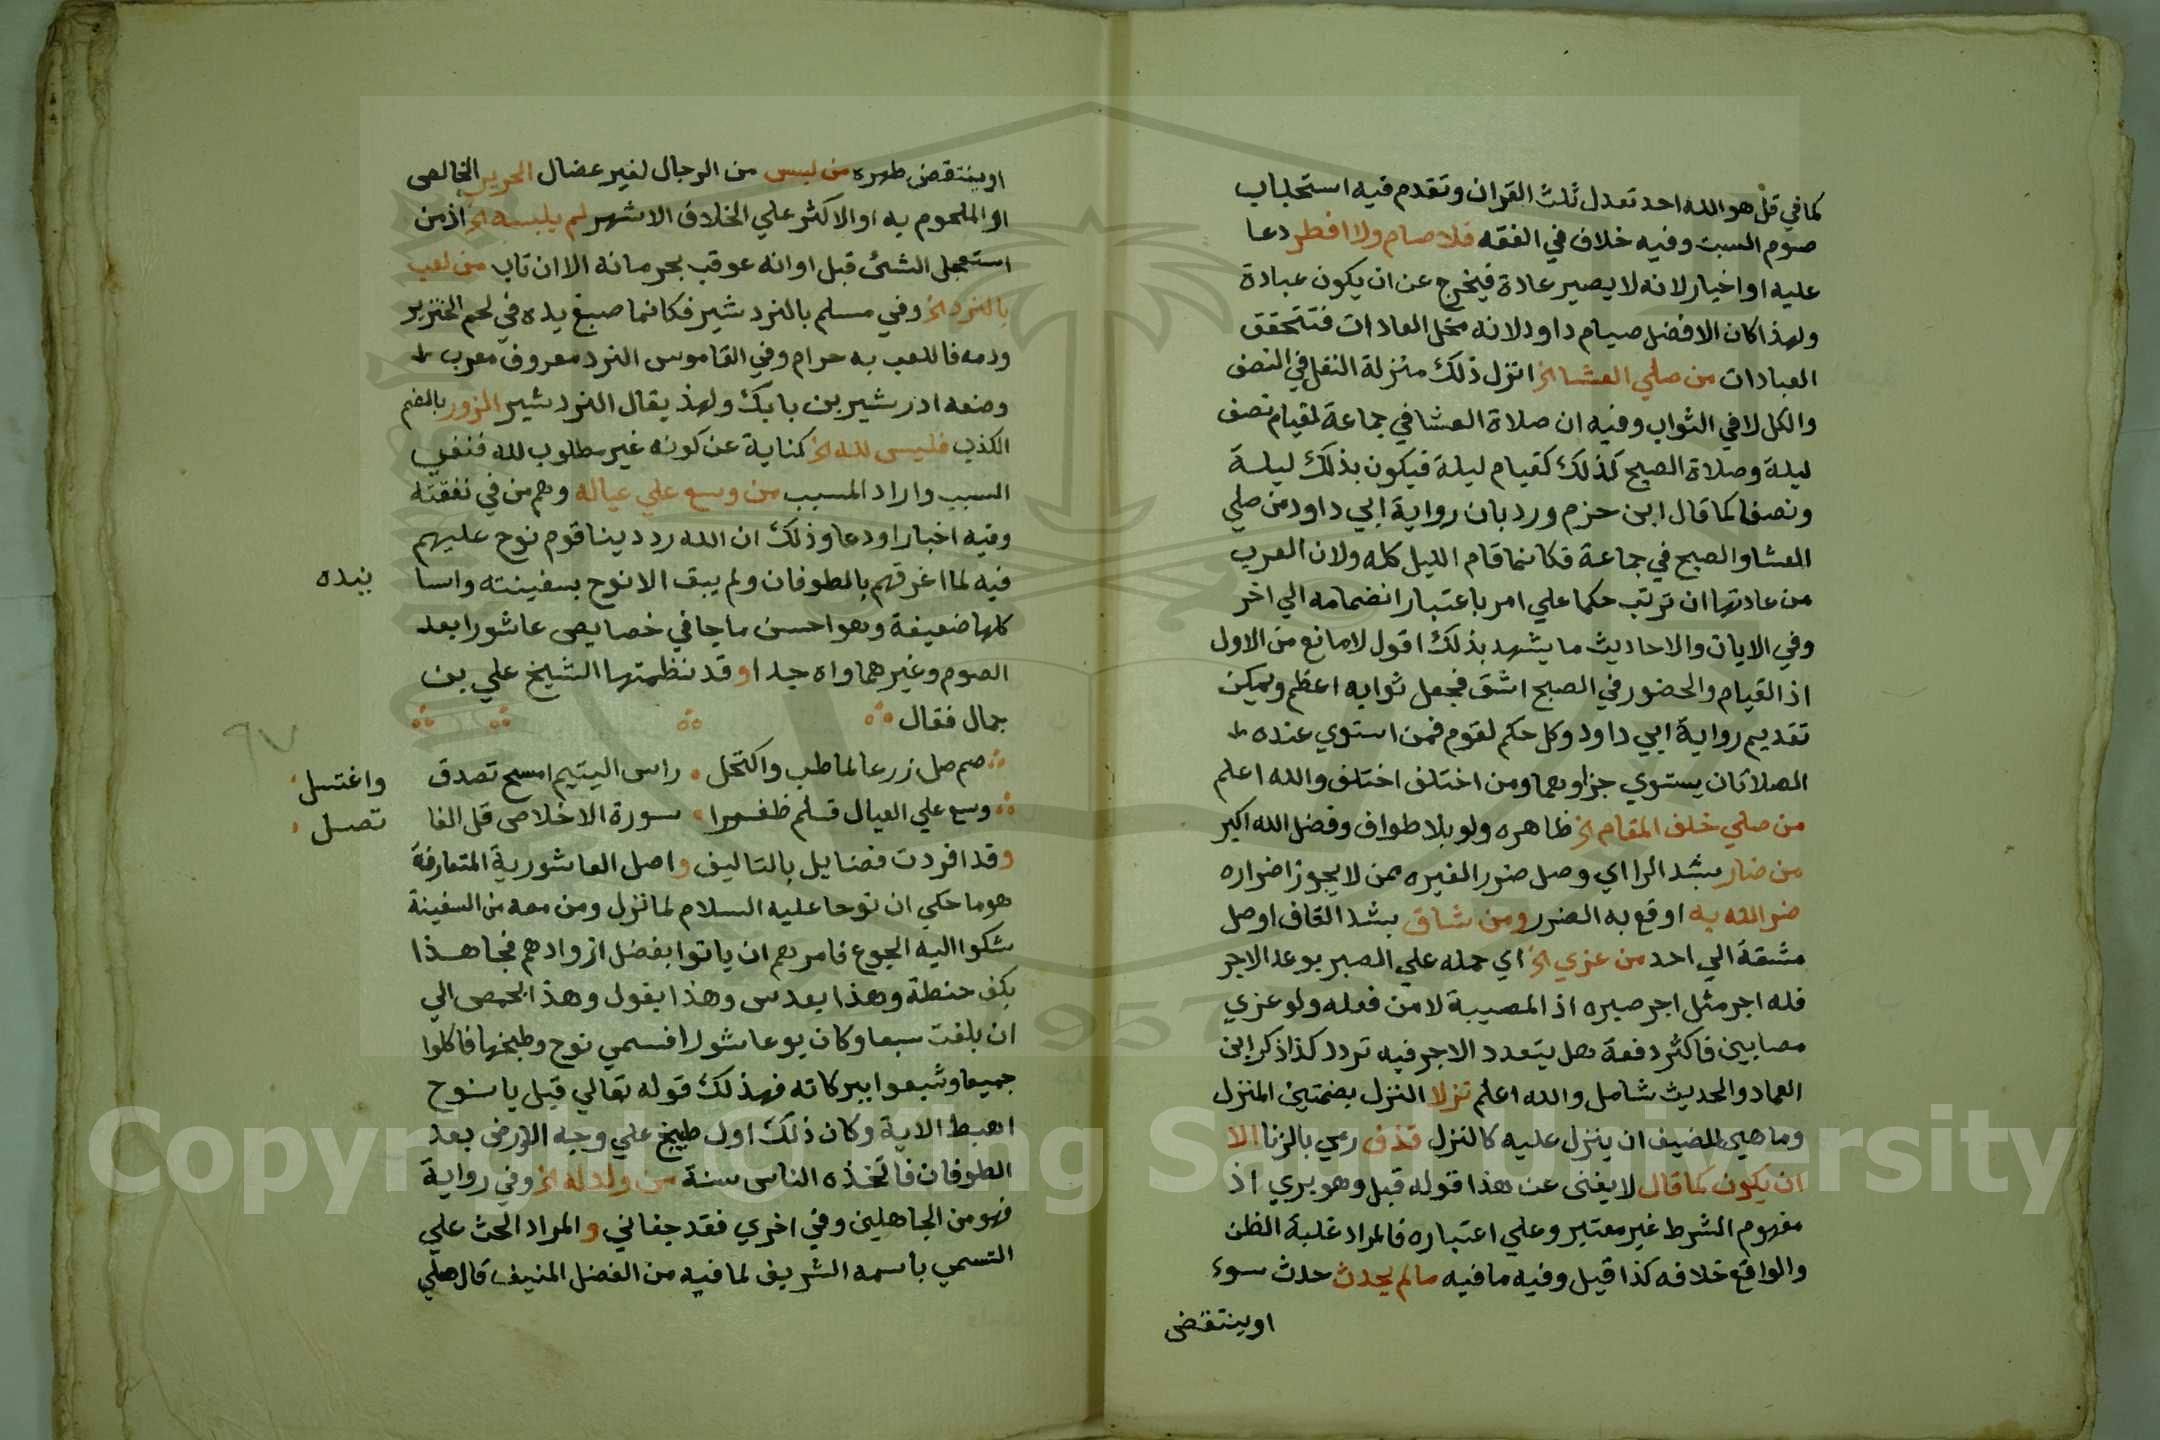 كما في قل هو الله احد تعدل ثلث القران وتقدم فيه استحباب
صوم السبت وفيه خلاف في الفقه فلا صام ولا افطر دعا
عليه او اخبار لانه لا يصير عادة فيخرج عن ان يكون عبادة
ولهذا كان الافضل صيام داود لانه مخل العادات فتتحقق
العبادات من صلي العشا الخ انزل ذلك منزلة النفل في النصف
والكل لا في الثواب وفيه ان صلاة العشا في جماعة لقيام نصف
ليلة وصلاة الصبح كذلك كقيام ليلة فيكون بذلك ليلة
ونصفا كما قال ابن حزم ورد بان رواية ابي داود من صلي
العشا والصبح في جماعة فكانما قام الليل كله ولان العرب
من عادتها ان ترتب حكما علي امر باعتبار انضمامه الي اخر
وفي الايات والاحاديث ما يشهد بذلك اقول لا مانع من الاول
اذ القيام والحضور في الصبح اشق فجعل ثوابه اعظم ويمكن
تقديم رواية ابي داود وكل حكم لقوم فمن استوي عنده
الصلاتان يستوي جزاوهما ومن اختلف اختلف والله اعلم
من صلي خلف المقام الخ ظاهره ولو بلا طواف وفضل الله اكبر
من ضار بشد الرا اي وصل ضررا لغيره ممن لا يجوز اضراره
ضر الله به اوقع به الضرر ومن شاق بشد القاف اوصل
مشقة الي احد من عزي الخ اي حمله علي الصبر بوعد الاجر
فله اجر مثل اجر صبره اذ المصيبة لا من فعله ولو عزي
مصابين فاكثر دفعة هل يتعدد الاجر فيه تردد كذا ذكر ابن
العماد والحديث شامل والله اعلم نزلا النزل بضمتين المنزل
وما هيي للضيف ان ينزل عليه كالنزل قذف رمي بالزنا الا
ان يكون كما قال لا يغني عن هذا قوله قبل وهو بري اذ
مفهوم الشرط غير معتبر وعلي اعتباره فالمراد غلبة الظن
والواقع خلافه كذا قيل وفيه ما فيه مالم يحدث حدث سوء
او ينتقض
او ينتقض طهره من لبس من الرجال لغير عضال الحرير الخالص
او الملحوم به او الاكثر علي الخلاف الاشهر لم يلبسه الخ اذ من
استعجل الشئ قبل اوانه عوقب بحرمانه الا ان تاب من لعب
بالنرد الخ وفي مسلم بالنرد شير فكانما صبغ يده في لحم الخنزير
ودمه فاللعب به حرام وفي القاموس النرد معروف معرب
وضعه ادرشير بن بابك ولهذ يقال النرد شير الزور بالضم
الكذب فليس لله الخ كناية عن كونه غير مطلوب لله فنفي
السبب واراد المسبب من وسع علي عياله وهم من في نفقته
وفيه اخبار او دعا وذلك ان الله رد دينا قوم نوح عليهم
فيه لما اغرقهم بالطوفان ولم يبق الا نوح بسفينته واسا
نيده
كلها ضعيفة وهو احسن ما جا في خصايص عاشورا بعد
الصوم وغيرهما واه جدا وقد نظمتها الشيخ علي بن
جمال فقال
صم صل زر عالما طب واكتحل راس اليتيم امسح تصدق
واغتسل
وسع علي العيال قلم ظفرا سورة الاخلاص قل الفا
تصل
وقد افردت فضايل بالتاليف واصل العاشورية المتعارفة
هو ما حكي ان نوحا عليه السلام لما نزل ومن معه من السفينة
شكوا اليه الجوع فامرهم ان ياتوا بفضل ازوادهم فجا هذا
بكف حنطة وهذا بعدس وهذا بفول وهذ الحمص الي
ان بلغت سبعا وكان يو عاشورا فسمي نوح وطبخها فاكلوا
جميعا وشبعوا ببركاته فهذلك قوله تعالي قيل يا نوح
اهبط الاية وكان ذلك اول طبيخ علي وجه الارض بعد
الطوفان فاتخذه الناس سنة من ولد له الخ وفي رواية
فهو من الجاهلين وفي اخري فقد جفاني والمراد الحث علي
التسمي باسمه الشريف لما فيه من الفضل المنيف قال صلي
Copyright © King Saud University
1957